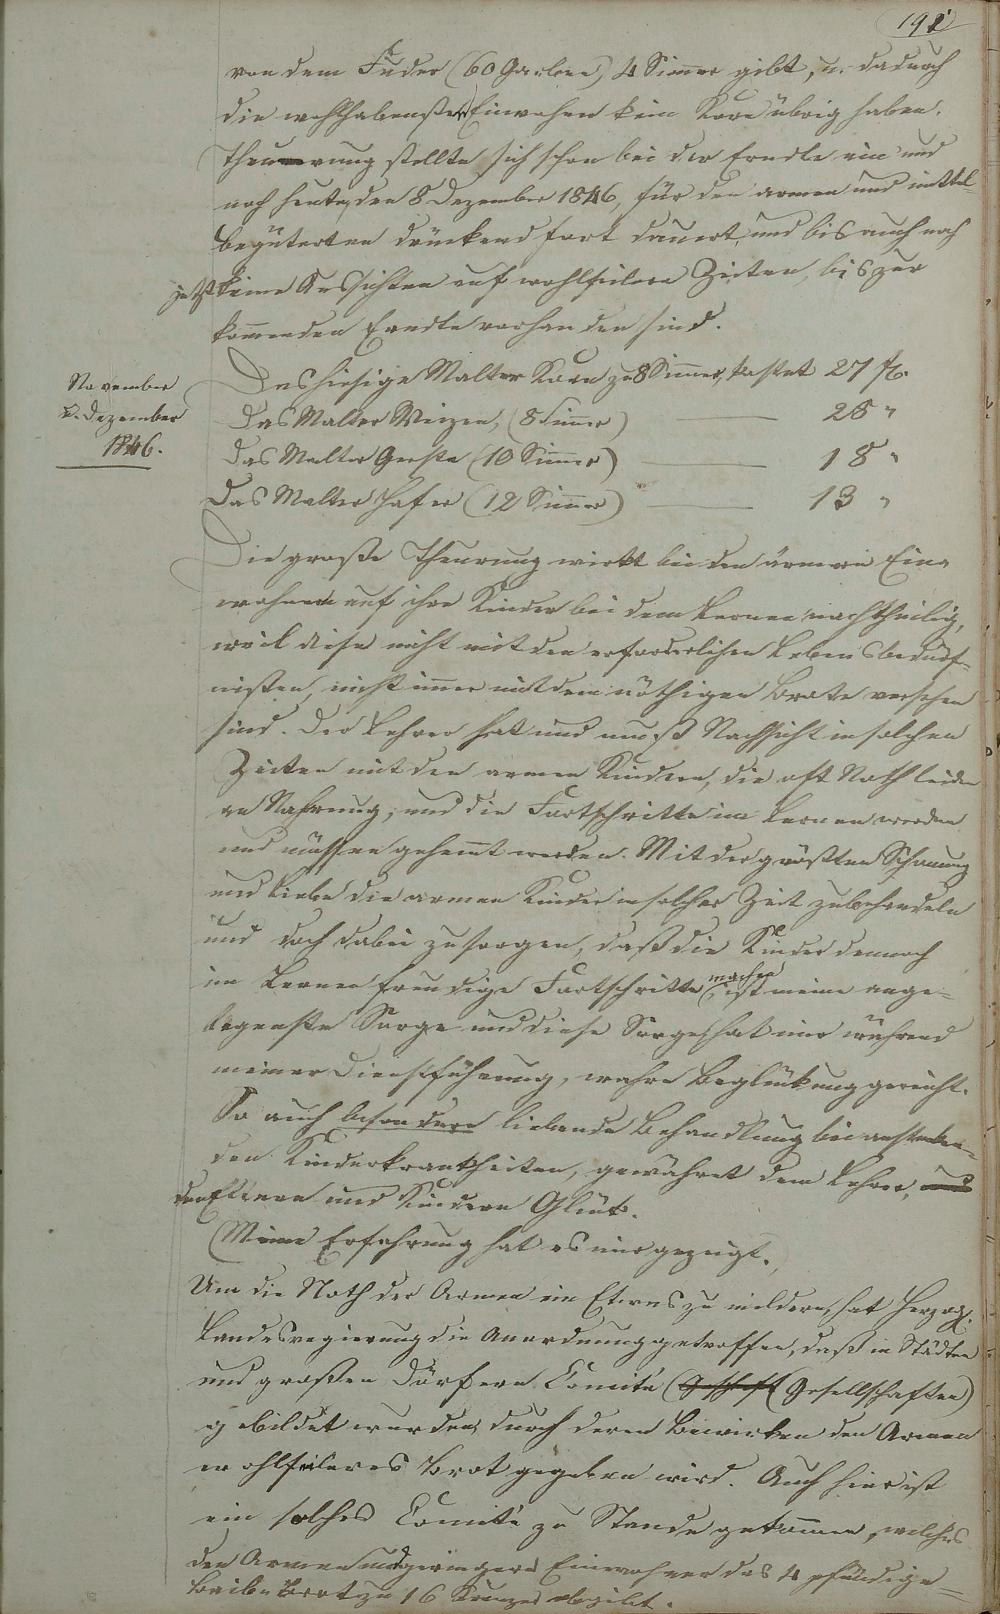 191
von dem Fuder (60 Garben) 4 Simmer gibt, u. dadurch
die wohlhabensten Einwohner kein Korn übrig haben.
Theuerung stellte sich schon bei der Erndte ein und
noch heute, den 8 Dezember 1846, für den armen und mittel
begüterten drückend fort dauert, und bis auch noch
jetzt keine Aussichten auf wohlfeilere Zeiten, bis zur
kommenden Erndte vorhanden sind.
November
u. Dezember
1846.
Das hiesige Malter Korn zu 8 Simmer, kostet 27 fl.
Das Malter Weizen, (8 Simmer) — 28 "
Das Malter Gerste (10 Simmer) — 18 "
Das Malter Hafer (12 Simmer) — 13 "
Die große Theurung wirkt bei den ärmern Ein-
wohnern auf ihre Kinder bei dem Lernen nachtheilig,
weil diese nicht mit den erforderlichen Lebensbedürf-
nißen, nicht immer mit dem nöthigen Brote versehen
sind. Der Lehrer hat und muß Nachsicht in solchen
Zeiten mit den armen Kindern, die oft Noth leiden
an Nahrung, und die Fortschritte im Lernen werden
und müssen gehemt werden. Mit der größten Schonung
und Liebe die armen Kinder in solcher Zeit zu behandeln
und doch dabei zu sorgen, daß die Kinder dennoch
im Lernen freudige Fortschritte machen ist meine ange-
legenste Sorge und diese Sorge, hat mir während
meiner Dienstführung, wahre Beglückung gereicht.
So auch besondere liebende Behandlung bei anstecken-
den Kinderkrankheiten, gewähret dem Lehrer, und
den Eltern und Kindern Glück.
(Meine Erfahrung hat es mir gezeigt.)
Um die Noth der Armen in Etwas zu mildern, hat Herzogl.
Landesregierung die Anordnung getroffen, daß in Städten
und großen Dörfern Comite (Gesellschaften)
gebildet wurden, durch deren Bewirken den Armen
wohlfeileres Brot gegeben wird. Auch hier ist
ein solches Comite zu Stande gekommen, welches
den Armen und geringern Einwohner das 4 pfündige
Leib Brot zu 16 Kreuzer abgibt.